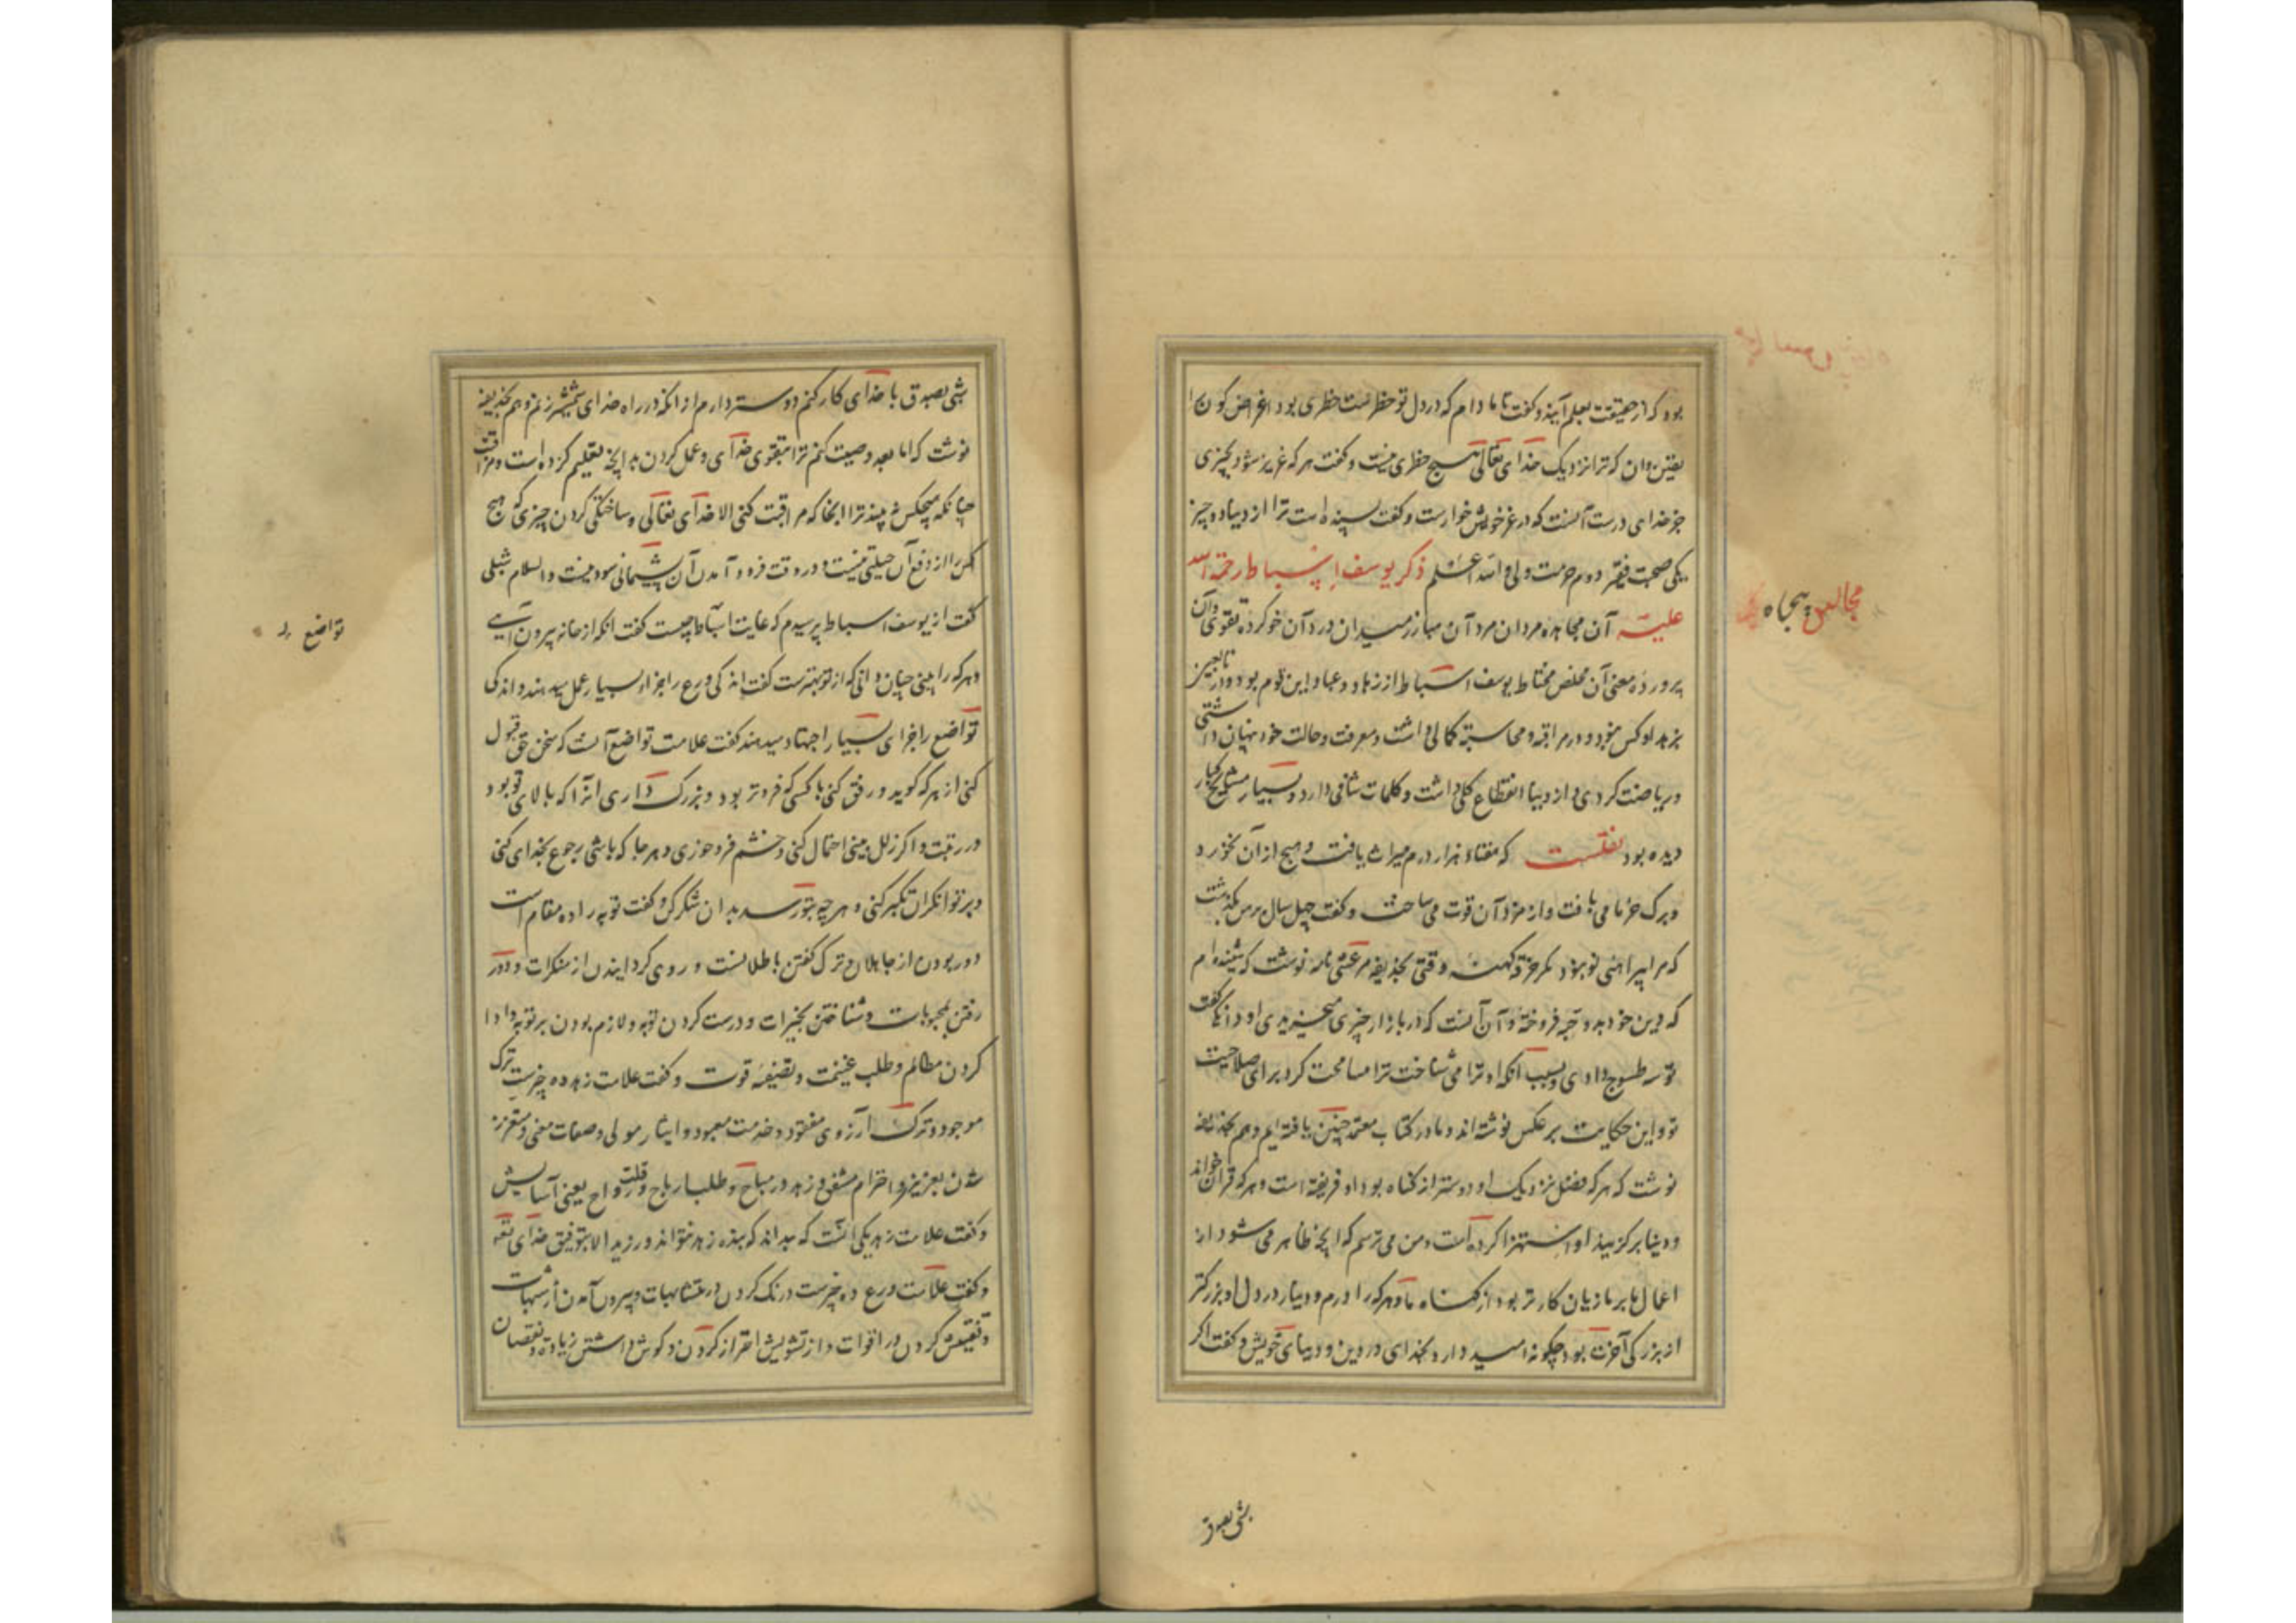 بود که از حقیقت بعلم آیند و گفت تا مادام که در دل تو خطر است خطری بود اغراض کون را
یقین دان که ترا نزدیک خدای تعالی هیچ خطری نیست و گفت هر که عزیز شود بچیزی
جز خدای درست آنست که در عز خویش خوارست و گفت بسنده است ترا از دنیا دو چیز
یکی صحبت فقیر دوم حرمت ولی والله اعلم ذکر یوسف اسباط رحمة الله
علیه آن مجاهد مردان مرد آن مبارز میدان درد آن خو کرده تقوی آن
پرورده معنی آن مخلص محتاط یوسف اسباط از زهاد و عباد این قوم بود و در تابعین
بزهد او کس نبود و در مراقبه و محاسبه کمالی داشت و معرفت و حالت خود پنهان داشتی
و ریاضت کردی و از دنیا انقطاع کلی داشت و کلمات شافی دارد و بسیار مشایخ کبار
دیده بود نقلست که هفتاد هزار درم میراث یافت و هیچ از آن نخورد
و برگ خرما می بافت و از مزد آن قوت می ساخت و گفت چهل سال بر من بگذشت
که مرا پیراهنی نو نبود مگر خرقه کهنه وقتی بحذیفه مرعشی نامه نوشت که شنیده ام
که دین خود بدو حبه فروخته و آن آنست که در بازار چیزی میخریدی او دانگی گفت
تو سه طسوج دادی و بسبب آنکه او ترا می شناخت ترا مسامحت کرد برای صلاحیت
تو و این حکایت بر عکس نوشته اند و ما در کتاب معتمد چنین یافته ایم و هم بحذیفه
نوشت که هر که فضل نزدیک او دوستر از گناه بود او فریفته است و هر که قرآن خواند
و دنیا برگزیند او استهزا کرده است و من می ترسم که آنچه ظاهر می شود از
اعمال ما بر ما زیان کارتر بود از گناه ما و هر که را درم و دینار در دل او بزرگتر
از بزرگی آخرت بود چگونه امید دارد بخدای در دین و دنیای خویش و گفت اگر
شبی بصدق
مجالس پنجاه
شبی بصدق با خدای کار کنم دوستر دارم از آنکه در راه خدای شمشیر زنم و هم بحذیفه
نوشت که اما بعد وصیت کنم ترا بتقوی خدای و عمل کردن بدانچه تعلیم کرده است و مراقبت
چنانکه هیچکس نبیند ترا آنجا که مراقبت کنی الا خدای تعالی و ساختگی کردن چیزی که هیچ
کس را از دفع آن حیلتی نیست و در وقت فرود آمدن آن پشیمانی سود نیست والسلام شبلی
گفت از یوسف اسباط پرسیدم که غایت چیست گفت آنکه از خانه بیرون آیی
و هر که را بینی چنان دانی که از تو بهترست گفت اندکی ورع را جزاء بسیار عمل میدهند و اندکی
تواضع را جزای بسیار اجتهاد میدهند گفت علامت تواضع آنست که سخن حق قبول
کنی از هر که گوید و رفق کنی با کسی که فروتر بود و بزرگ داری آنرا که بالای تو بود
در رتبت و اگر زلل بینی احتمال کنی و خشم فرو خوری و هر جا که باشی رجوع بخدای کنی
و بر توانگران تکبر کنی و هر چه بتو رسد بدان شکر کنی و گفت توبه را ده مقام است
دور بودن از جاهلان و ترک گفتن باطلانست و روی گردانیدن از منکرات و در
رفتن بمحبوبات و شتافتن بخیرات و درست کردن توبه و لازم بودن بر توبه و ادا
کردن مظالم و طلب غنیمت و تصفیه قوت و گفت علامت زهد ده چیزست ترک
موجود و ترک آرزوی مفقود و خدمت معبود و ایثار مولی و صفات معنی و متعزز
شدن بعزیز و احترام مشفق و زهد در مباح و طلب ارباح و قلت رواح یعنی آسایش
و گفت علامت زهد یکی آنست که بداند که بنده زهد نتواند ورزید الا بتوفیق خدای تعا
و گفت علامت ورع ده چیزست درنگ کردن در متشابهات و بیرون آمدن از شبهات
و تفتیش کردن در اقوات و از تشویش احتراز کردن و گوش داشتن زیادت و نقصان
تواضع